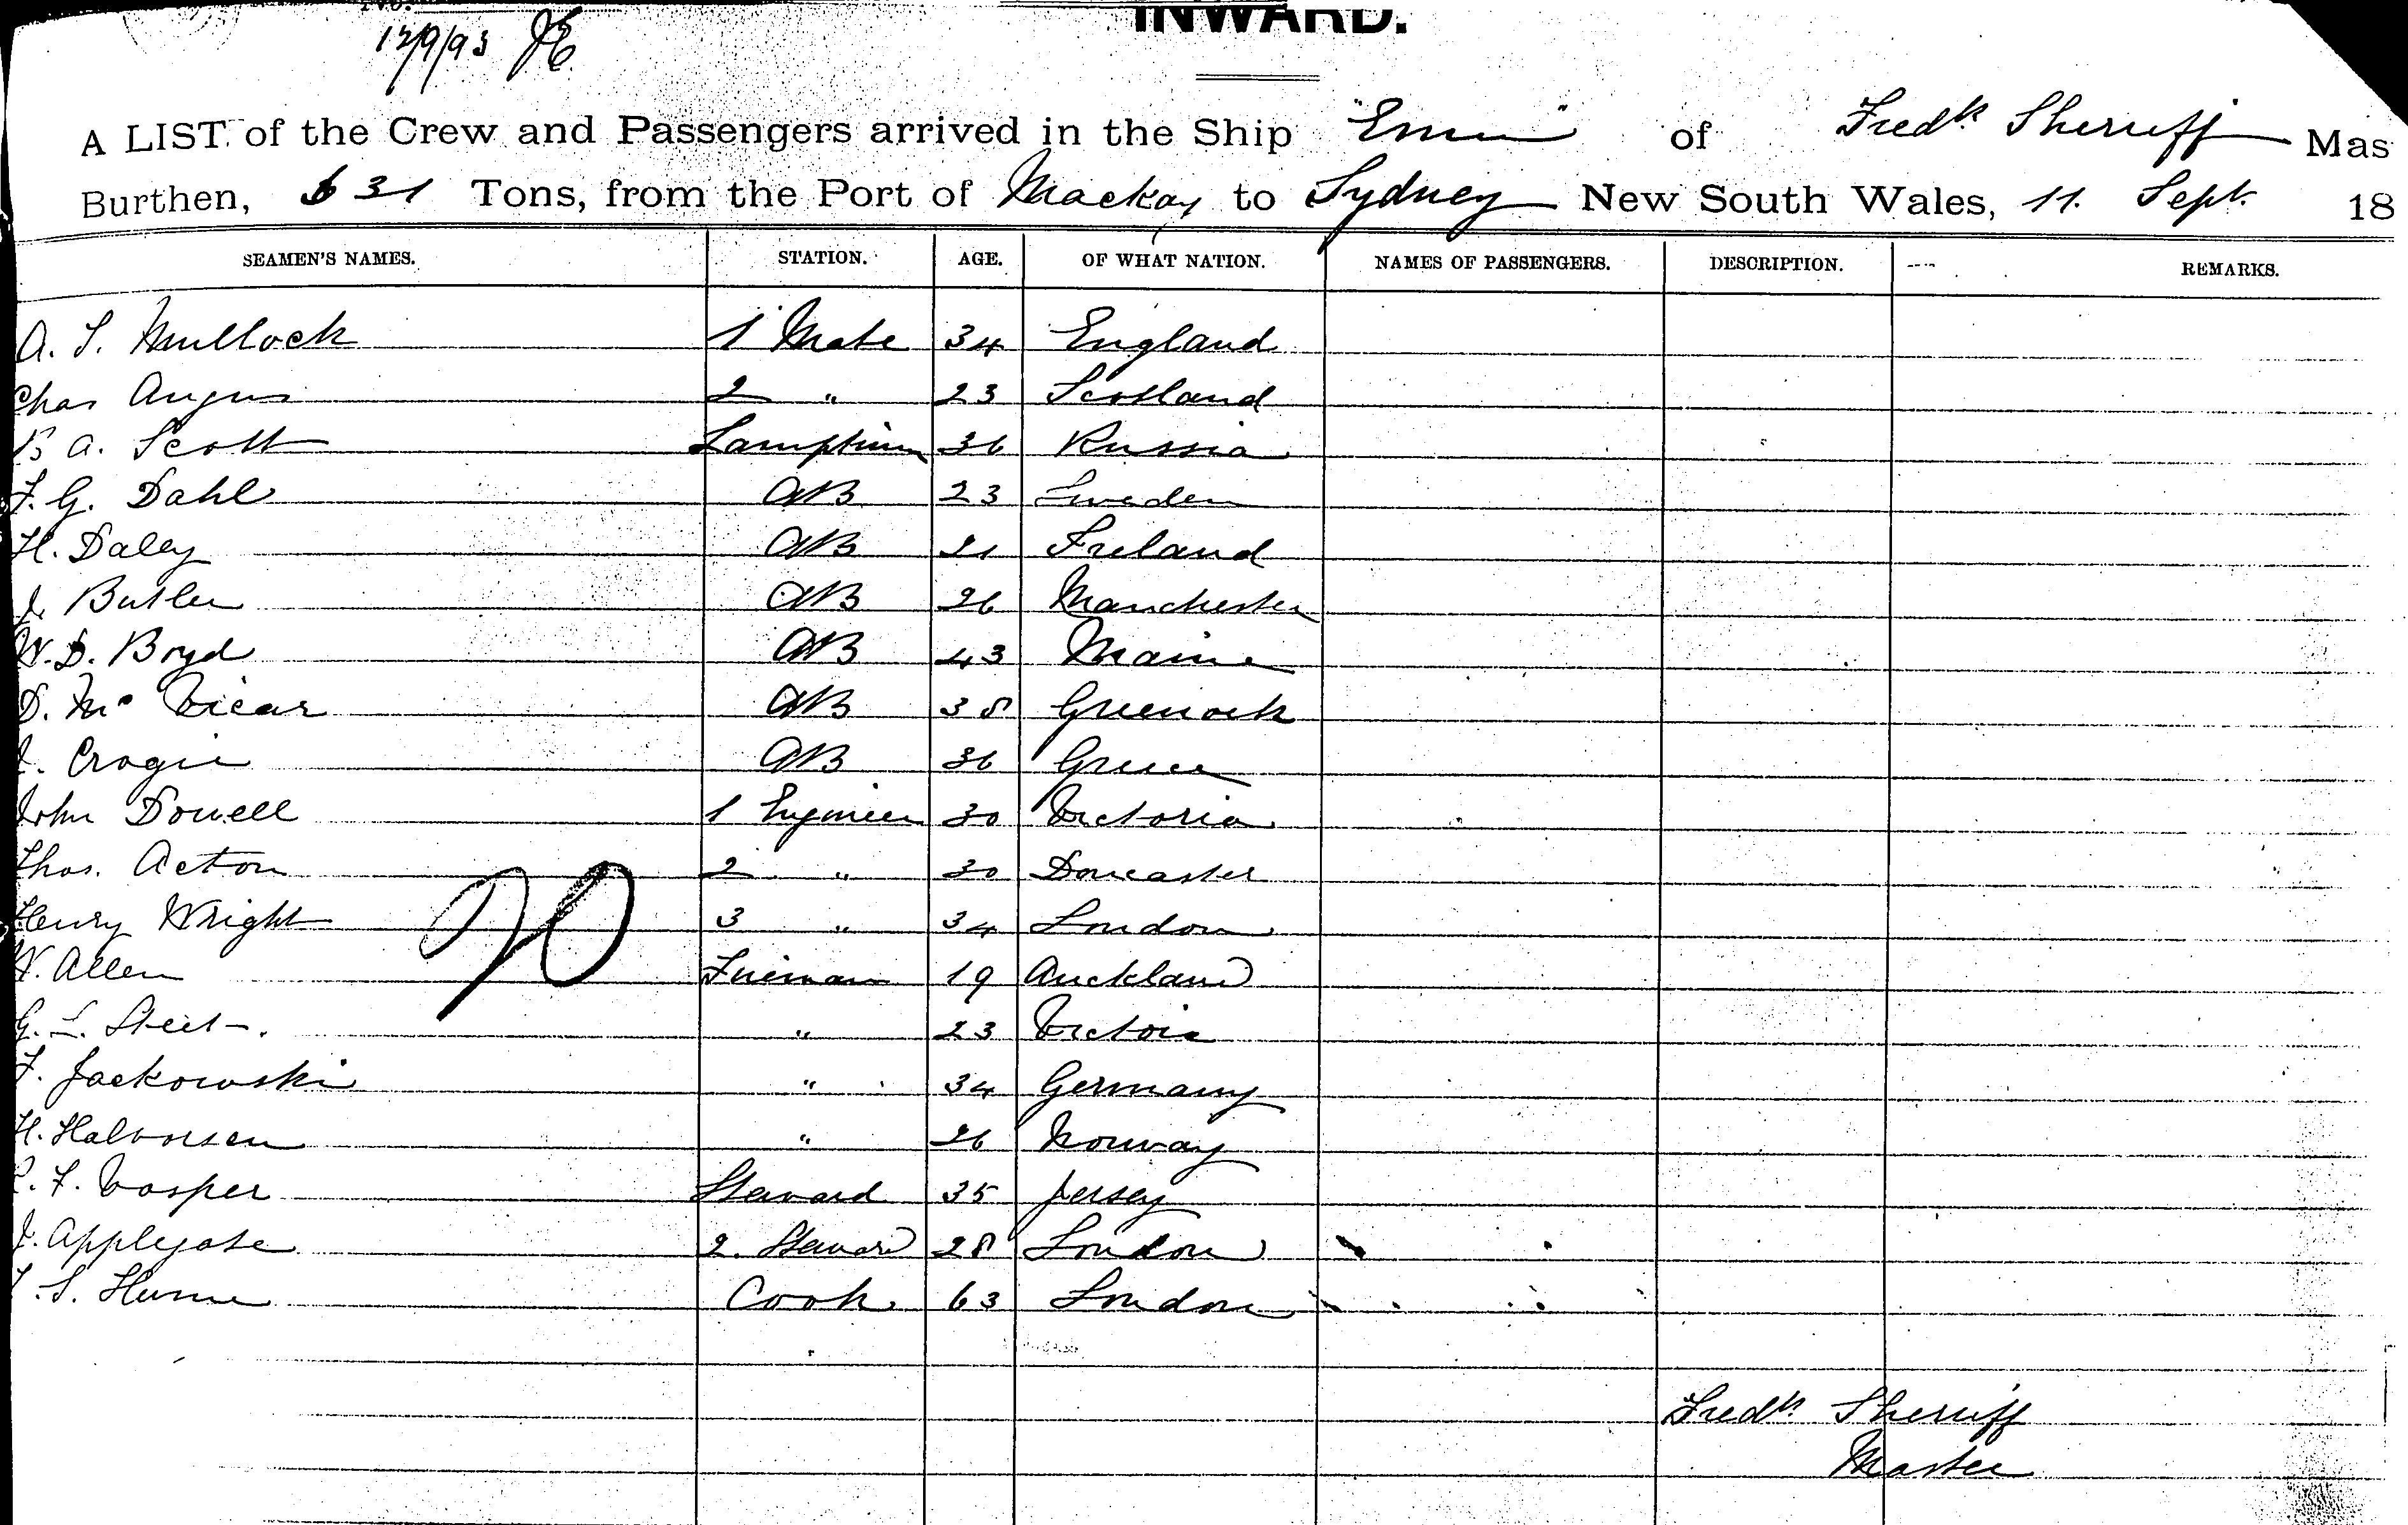 12/9/93 JE
INWARD.
A LIST of the Crew and Passengers arrived in the Ship "Emu" of Fredk Sherriff Mas
Burthen, 631 Tons, from the Port of Mackay to Sydney New South Wales, 11. Sept. 18
SEAMEN'S NAMES. STATION. AGE. OF WHAT NATION. NAMES OF PASSENGERS. DESCRIPTION. REMARKS.
A. S. Mullock 1 Mate 34 England
Chas Angus 2 " 23 Scotland
B A. Scott Lamptrimr 36 Russia
F. G. Dahl AB 23 Sweden
H. Daley AB 21 Ireland
J. Butler AB 26 Manchester
W. D. Boyd AB 43 Maine
D. Mc Vicar AB 38 Greenock
J. Cragie AB 36 Greece
John Dowell 1 Engineer 30 Victoria
Thos. Acton 2 " 30 Doncaster
Henry Wright 3 " 34 London
W. Allen Fireman 19 Auckland
G. L. Steet " 23 Victoia
F. Jackowski " 34 Germany
H. Halvorsen " 26 Norway
F. Vosper Steward 35 Jersey
J. Applegate 2. Steward 28 London
S. Hume Cook 63 London
20
Fredk. Sherriff
Master